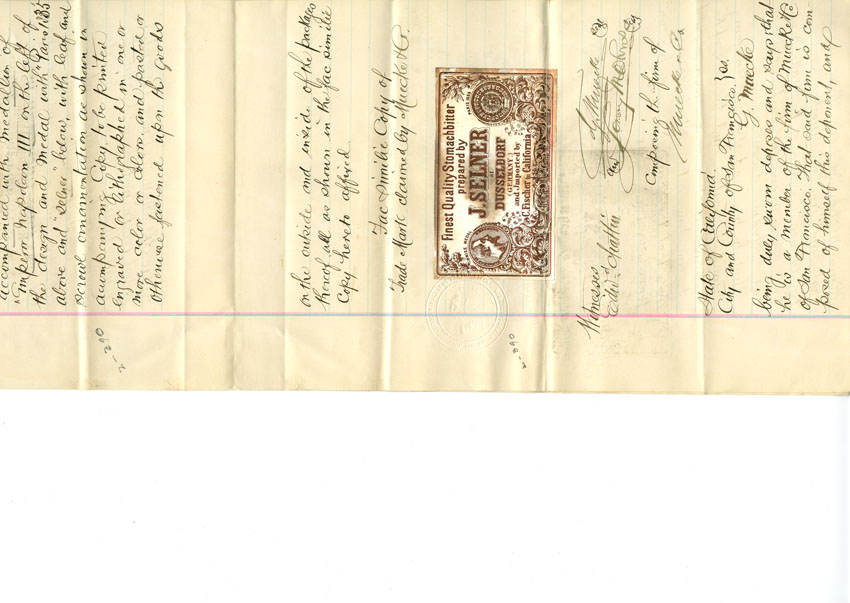 accompanied with medallion of
"Imperor Napoleon III" on the left of
the design and medal with "Paris 1855"
above and "Selner" below, with leaf and
scrowl ornamentation as shown in
acompanying Copy to be printed
engraved or lithographed in one or
more color or colors, and pasted or
otherwise fastened upon the goods
2-390
on the outside and inside of the packages
thereof all as shown in the fac simile
Copy hereto affixed
Fac Similie Copy of
Trade Mark claimed by Muecke & Co.
Finest Quality Stomachbitter
prepared by
J. SELNER
DUSSELDORF
(GERMANY)
and imported by
C. Fischer & California
2-390
Witnesses
Comprising the firm of
Muecke & Co
State of California
City and County of San Francisco } ss.
G Muecke
being duly sworn deposes and says that
he is a member of the firm of Muecke & Co
of San Francisco. That said firm is com
posed of himself this deponent, and